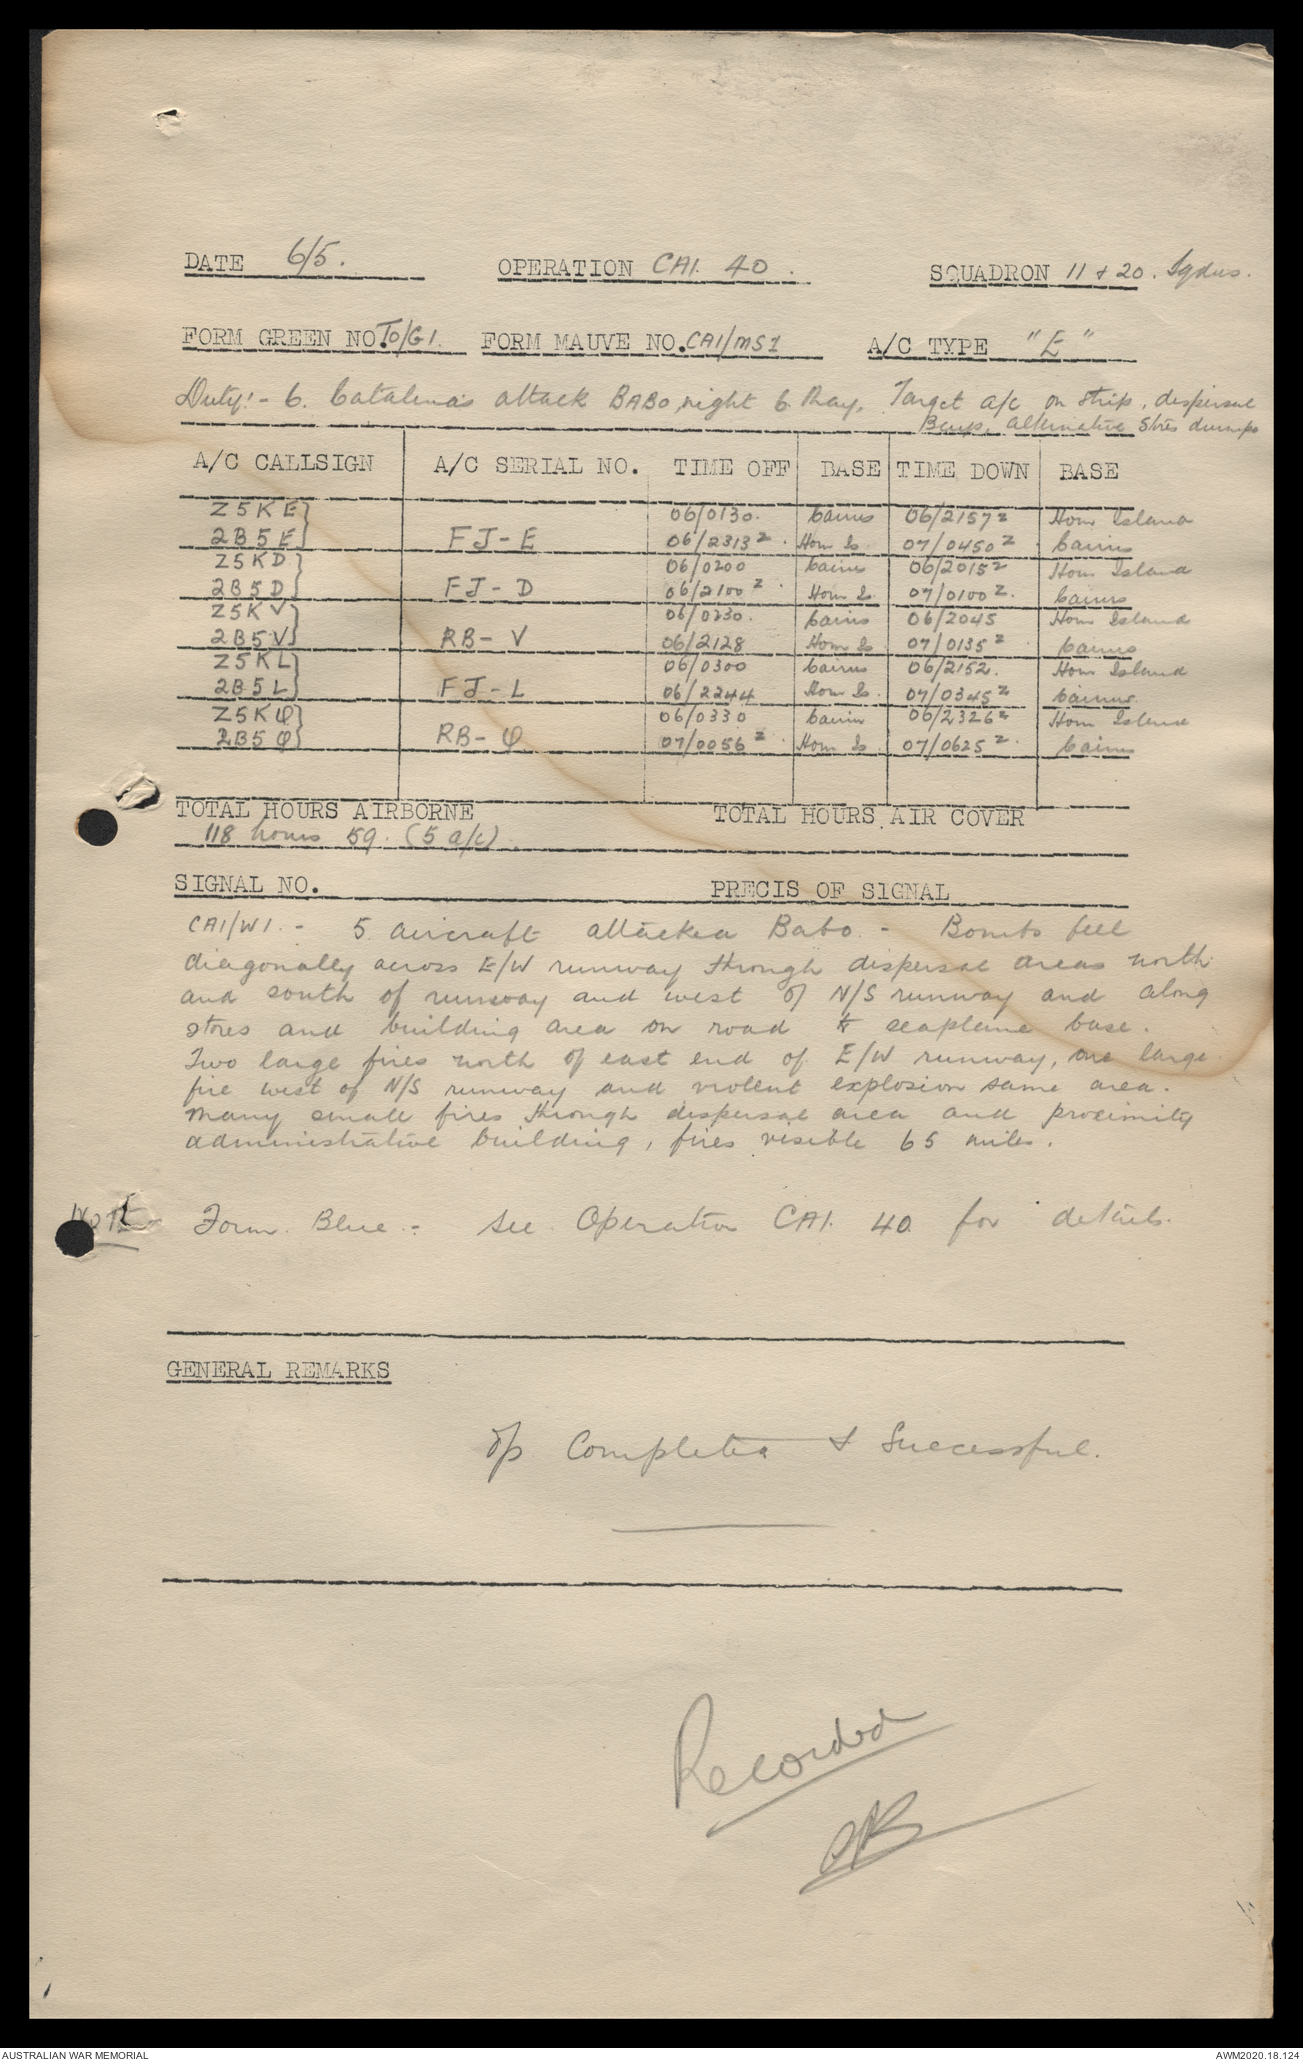 DATE 6/5. OPERATION CAI. 40. SQUADRON 11 & 20. Sqdns.
FORM GREEN NO. TO/G1. FORM MAUVE NO. CAI/MS1 A/C TYPE "E"
Duty:- 6. Catalina's attack BABO night 6 May. Target a/c on strip, dispersal
Bays, alternative Stores dumps
A/C CALLSIGN A/C SERIAL NO. TIME OFF BASE TIME DOWN BASE
Z5KE} 06/0130. Cairns 06/2157z Horn Island
2B5E} FJ-E 06/2313z. Horn Is. 07/0450z Cairns
Z5KD} 06/0200 Cairns 06/2015z Horn Island
2B5D} FJ-D 06/2100z Horn Is. 07/0100z. Cairns
Z5KV} 06/0230. Cairns 06/2045 Horn Island
2B5V} RB-V 06/2128 Horn Is 07/0135z Cairns
Z5KL} 06/0300 Cairns 06/2152. Horn Island
2B5L} FJ-L 06/2244 Horn Is. 07/0345z Cairns.
Z5KQ} 06/0330 Cairns 06/2326z Horn Island
2B5Q} RB-Q 07/0056z Horn Is 07/0625z. Cairns
TOTAL HOURS AIRBORNE TOTAL HOURS AIR COVER
118 hours 59. (5 a/c).
SIGNAL NO. PRECIS OF SIGNAL
CAI/W1.- 5 aircraft attacked Babo.- Bombs fell
diagonally across E/W runway through dispersal areas north
and south of runway and west of N/S runway and along
stores and building area on road to seaplane base.
Two large fires north of east end of E/W runway, one large
fire west of N/S runway and violent explosion same area.
Many small fires through dispersal area and proximity
administrative building, fires visible 65 miles.
NOTE Form Blue:- see Operation CAI. 40 for details.
GENERAL REMARKS
Op Completed & Successful.
Recorded
AUSTRALIAN WAR MEMORIAL AWM2020.18.124